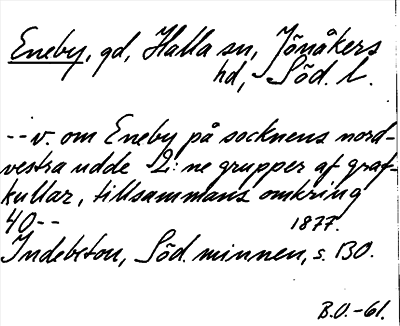 Eneby, gd, Halla sn, Jönåkers
hd, Söd. l.
--v. om Eneby på socknens nord-
vestra udde 2:ne grupper af graf-
kullar, tillsammans omkring
40-- 1877.
Indebetou, Söd. minnen, s. 130.
B.O.-61.